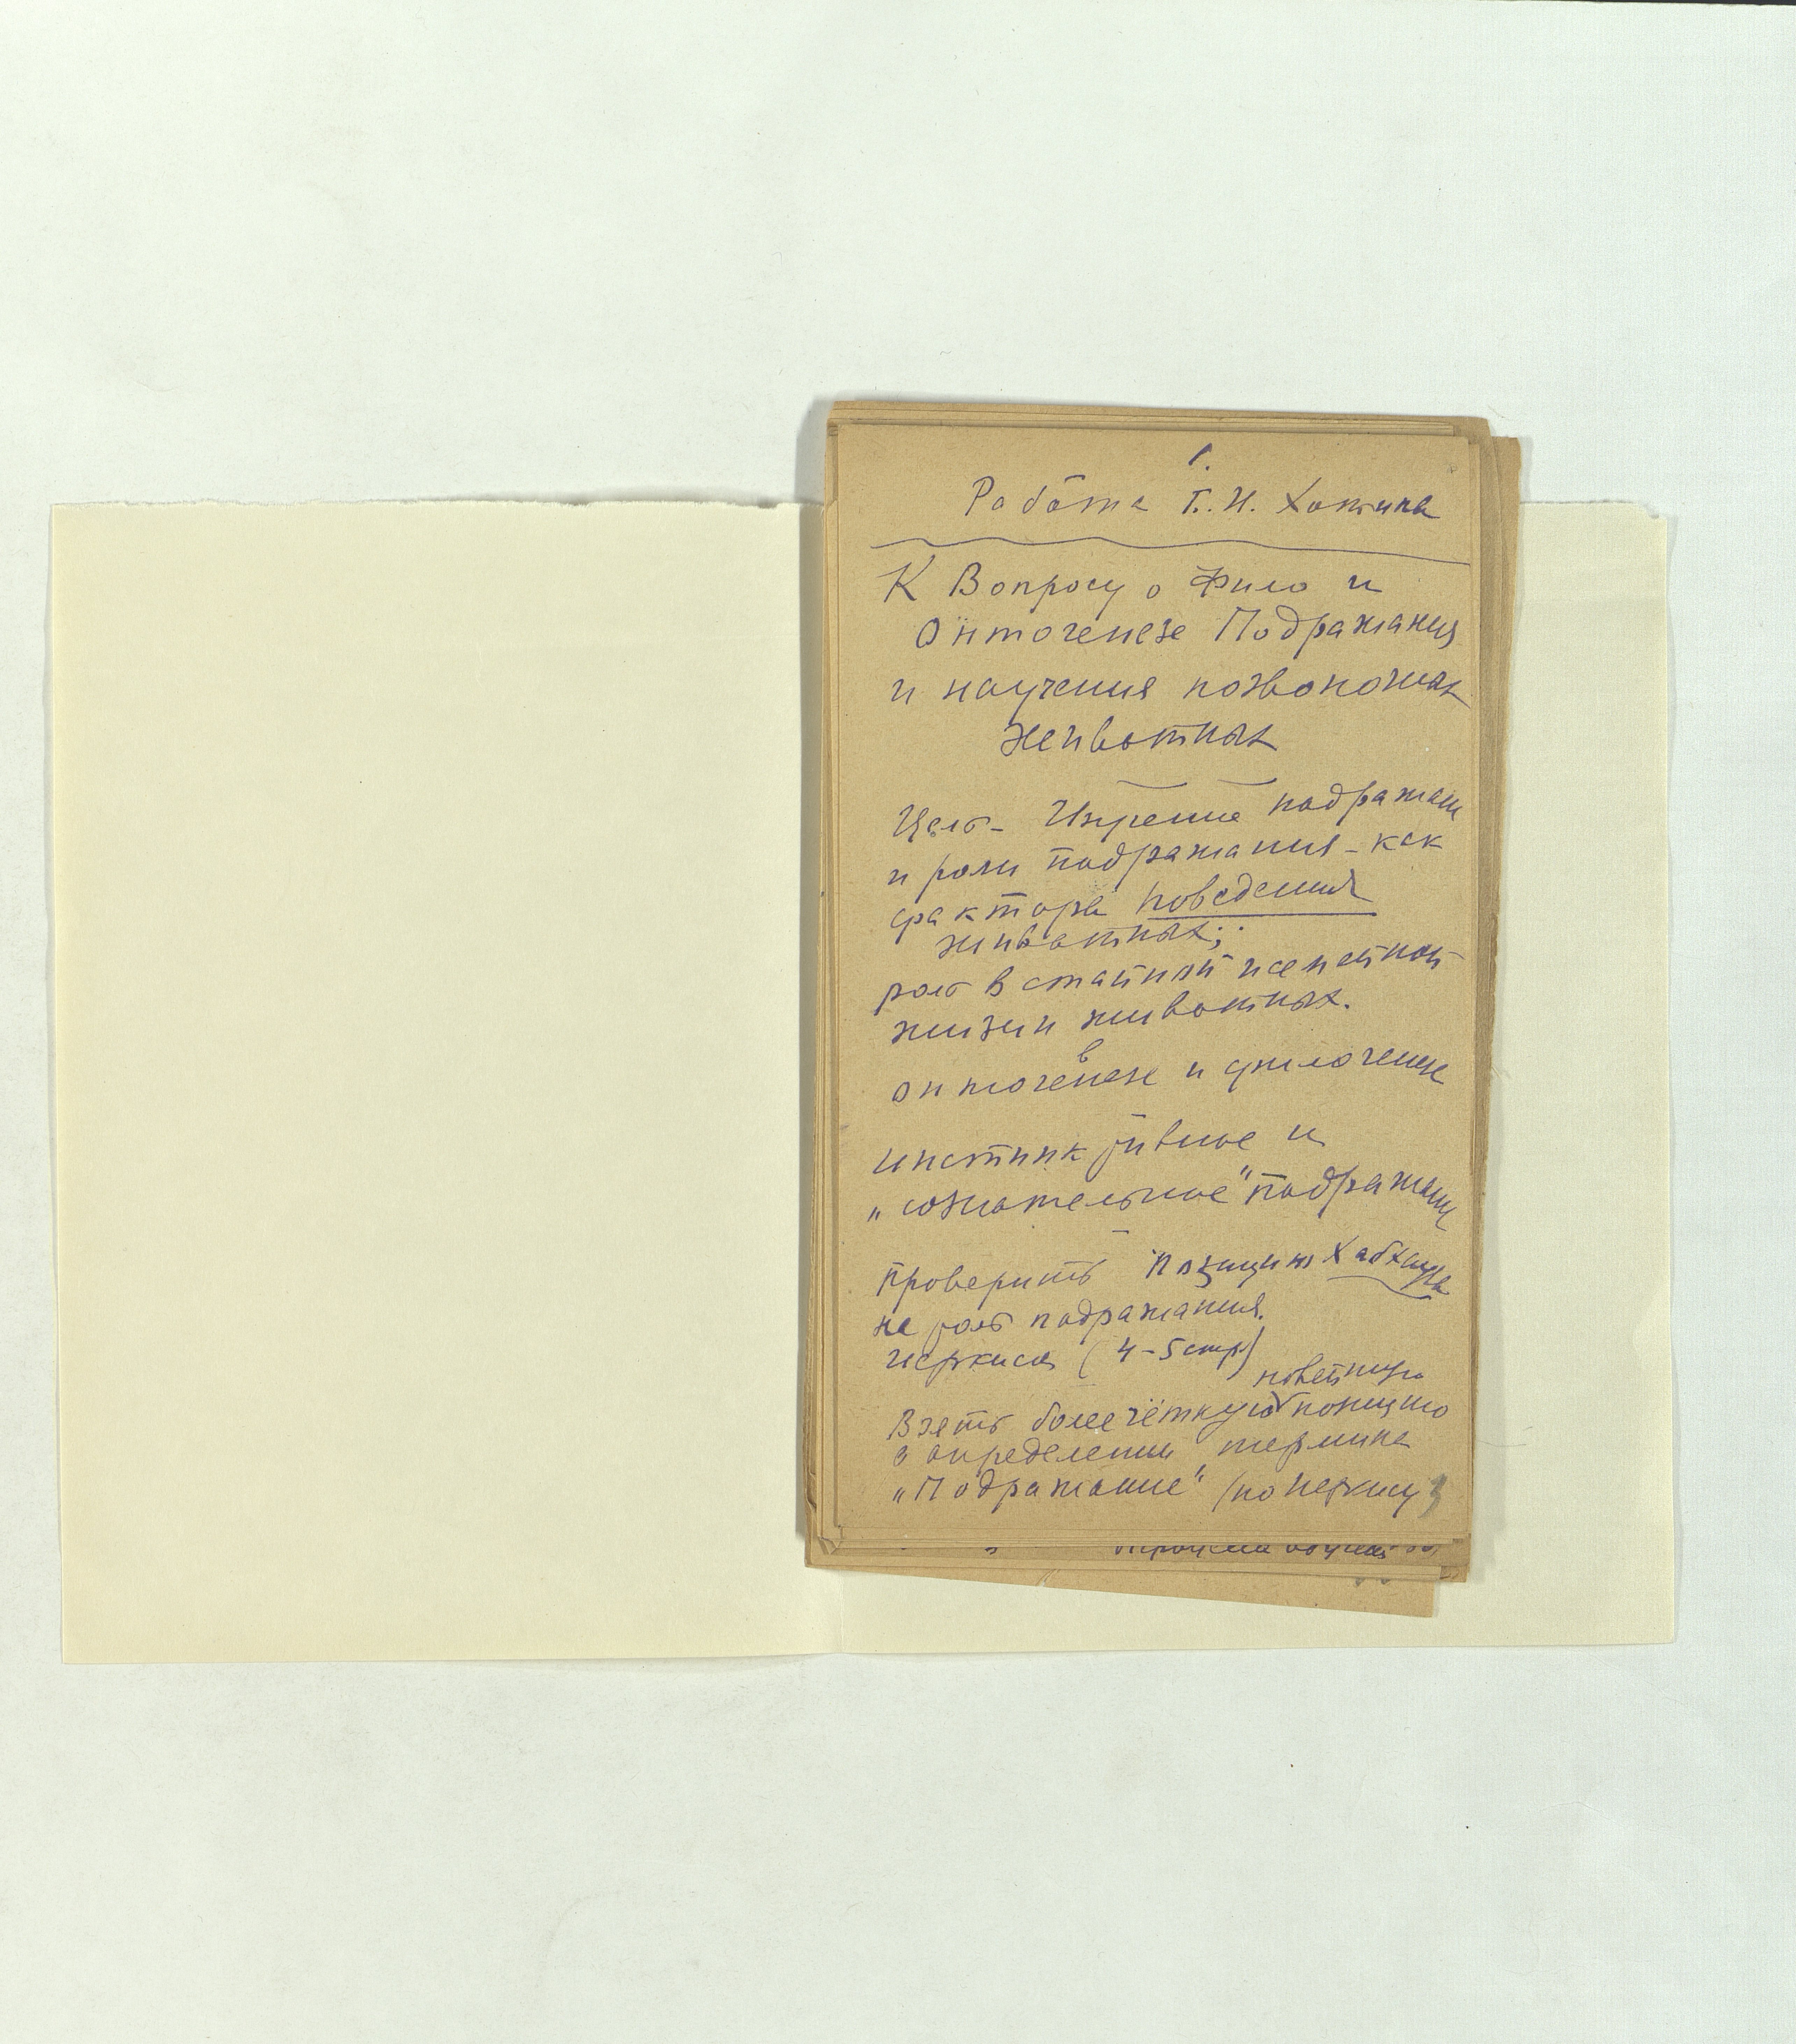 1.
Работа Б. И. Хотина
К Вопросу о Фило и
Онтогенезе Подражания
и научения позвоночных
животных
Цель - Изучение подражан
и роли подражания - как
фактора поведения
животных;
роль в стайной и семейной
жизни животных.
в
онтогенезе и филогенезе
инстинктивное и
„сознательное" подражани
Проверить позицию Хабхауза
на роль подражания.
Иеркиса (4-5 стр)
новейшую
Взять более чёткую позицию
в определении термина
„Подражание" (по Иеркису)